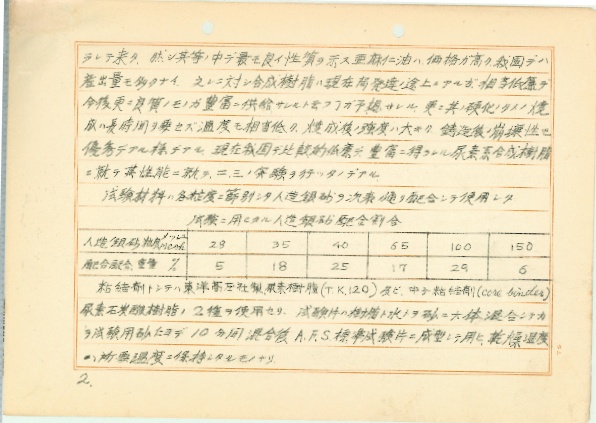 ラレテ来タ. 然シ其等ノ中デ最モ良イ性質ヲ示ス亜麻仁油ハ価格ガ高ク我国デハ
産出量モ多クナイ. 之ニ対シ合成樹脂ハ現在尚発達ノ途上ニアルガ, 相当低廉デ
今後更ニ良質ノモノガ豊富ニ供給サレルト云フ事ガ予想サレル. 更ニ其ノ硬化ノタメノ焼
成ハ長時間ヲ要セズ温度モ相当低ク, 焼成後ノ強度ハ大キク 鋳造後ノ崩壊性モ
優秀デアル様デアル. 現在我国デ比較的低廉デ豊富ニ得ラレル尿素系合成樹脂
ニ就テ其性能ニ就テ, 二, 三ノ実験ヲ行ッタノデアル
試験材料ハ各粒度ニ篩別シタ人造銀砂ヲ次表ノ通リ配合シテ使用シタ
試験ニ用ヒタル人造銀砂配合割合
人造銀砂粒度 メッシュ mesh 28 35 40 65 100 150
配合割合, 重量 % 5 18 25 17 29 6
粘結剤トシテハ東洋高圧社製尿素樹脂(T.K.120)及ビ, 中子粘結剤(core binder)
尿素石炭酸樹脂ノ2種ヲ使用セリ. 試験片ハ樹脂ト水トヲ砂ニ大体混合シテカ
ラ試験用砂ミキサーデ10分間混合後A.F.S.標準試験片ニ成型シテ用ヒ, 乾燥温度
ハ所要温度ニ保持シタルモノナリ
2.